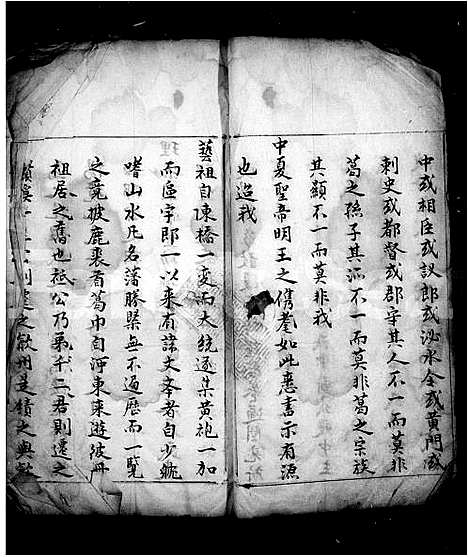 中或相臣或議郎或泌水令或黃門或
刺史或都督或郡守其人不一而莫非
葛之孫子其派不一而莫非葛之宗族
其顯不一而莫非我
中夏聖帝明王之儁耄如此應書示有源
也迨我
藝祖自陳橋一變而大統遂集黃袍一加
而區宇即一以來有諱文者自少
嗜山水凡名藩勝槩無不遍歷而一覧
之竟披鹿裘首葛巾自河東來遊彼丹
祖居之舊也祗公乃苐千二君則遷之
之歙州是績之與歙